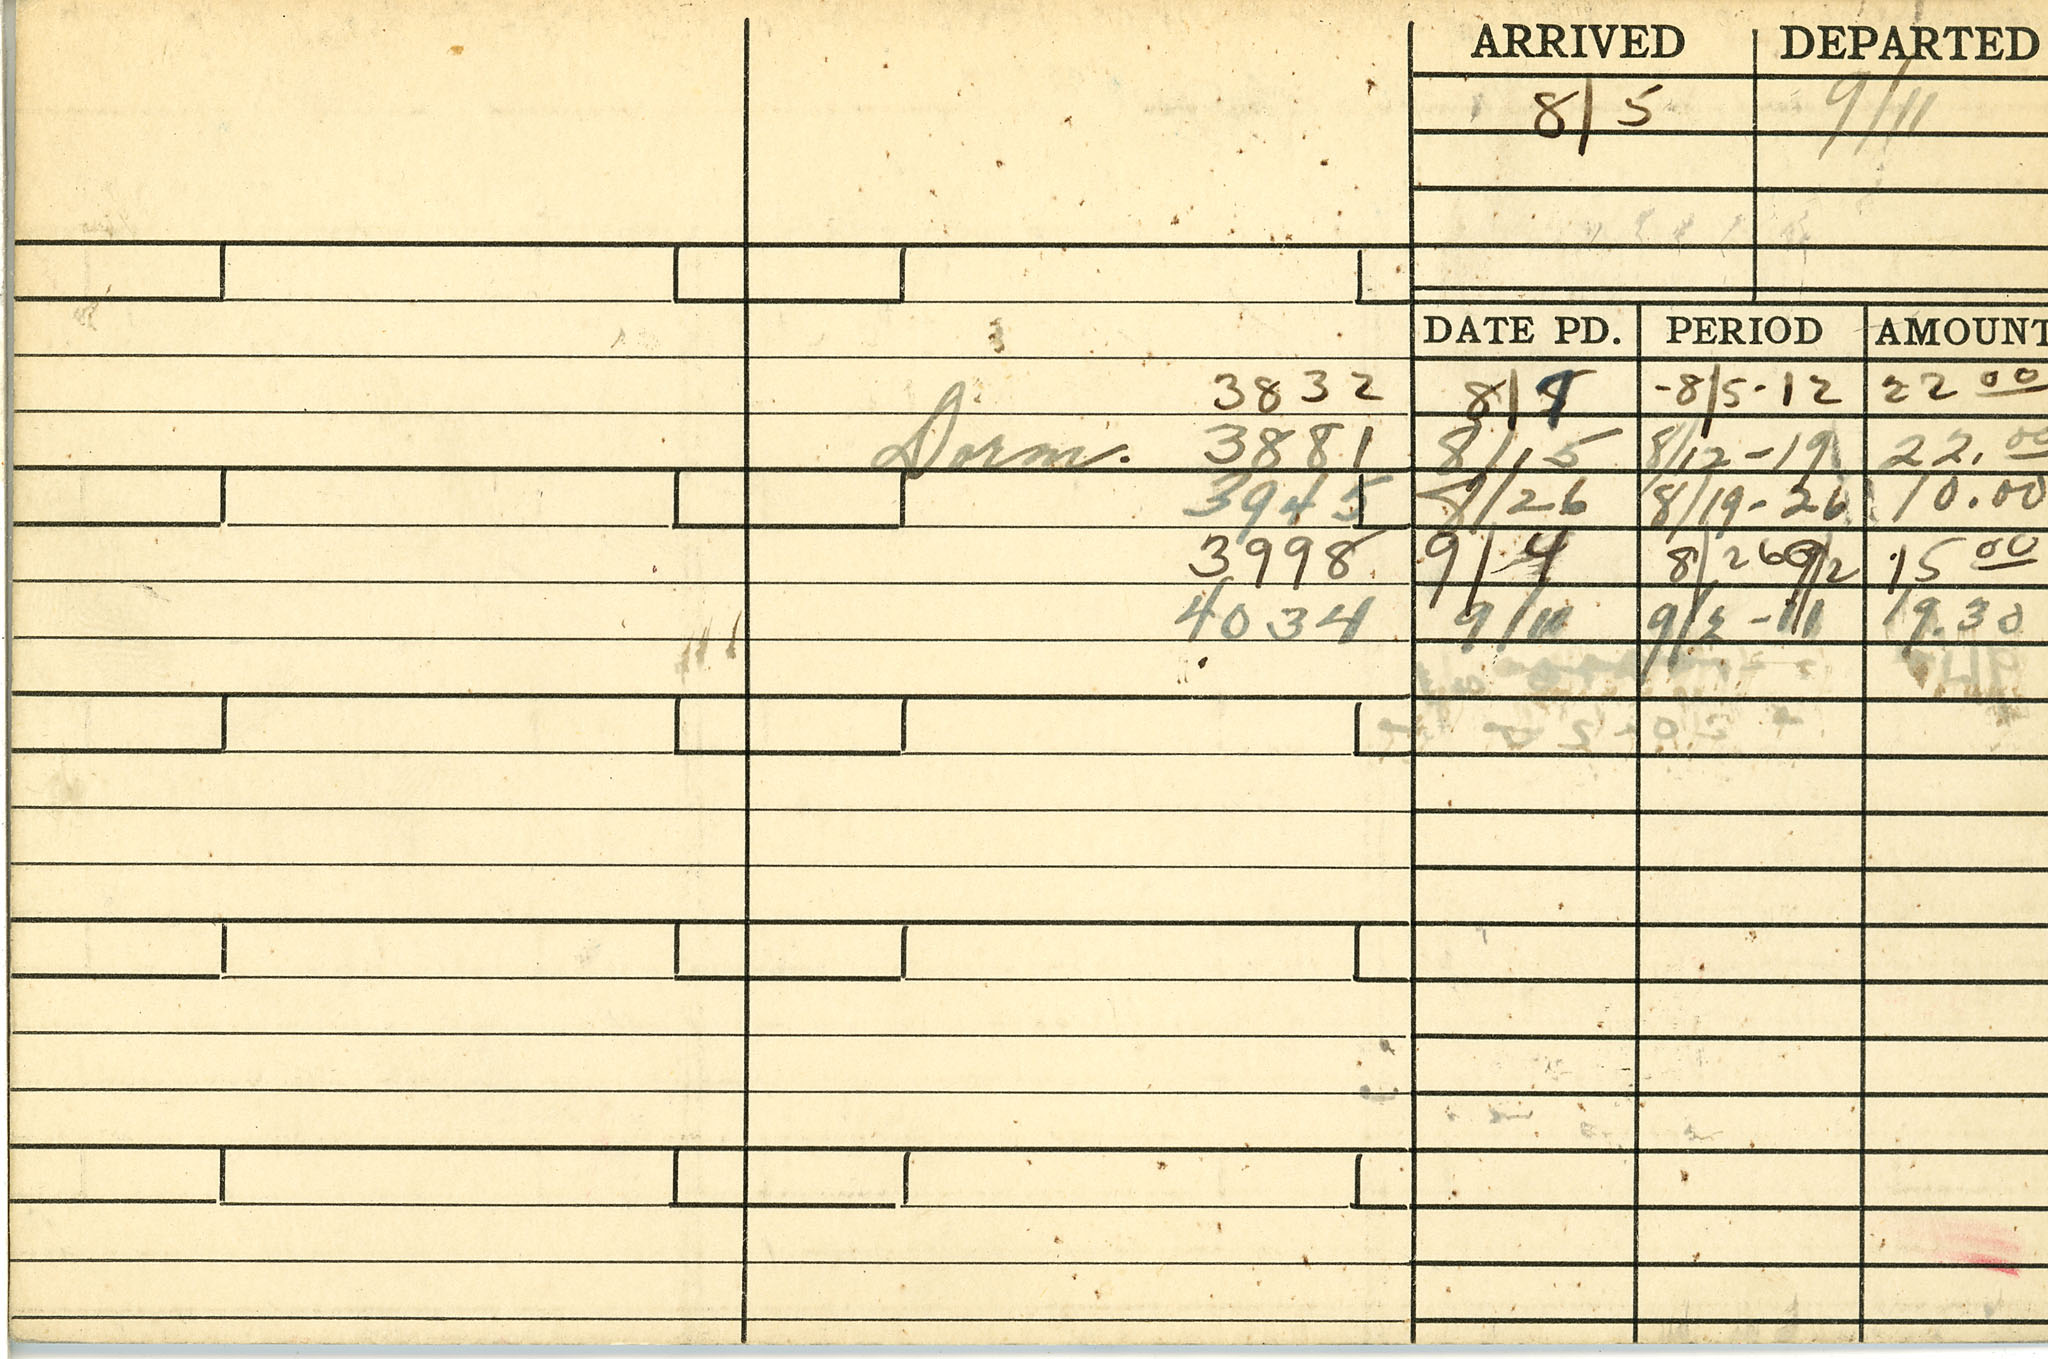 ARRIVED DEPARTED
8/5 9/11
DATE PD. PERIOD AMOUNT
3832 8/ -8/5-12 22 00
Dorm. 3881 8/15 8/12-19 22.00
3945 8/26 8/19-26 10.00
3998 9/4 8/26 9/2 15 00
4034 9/11 9/2-11 19.30